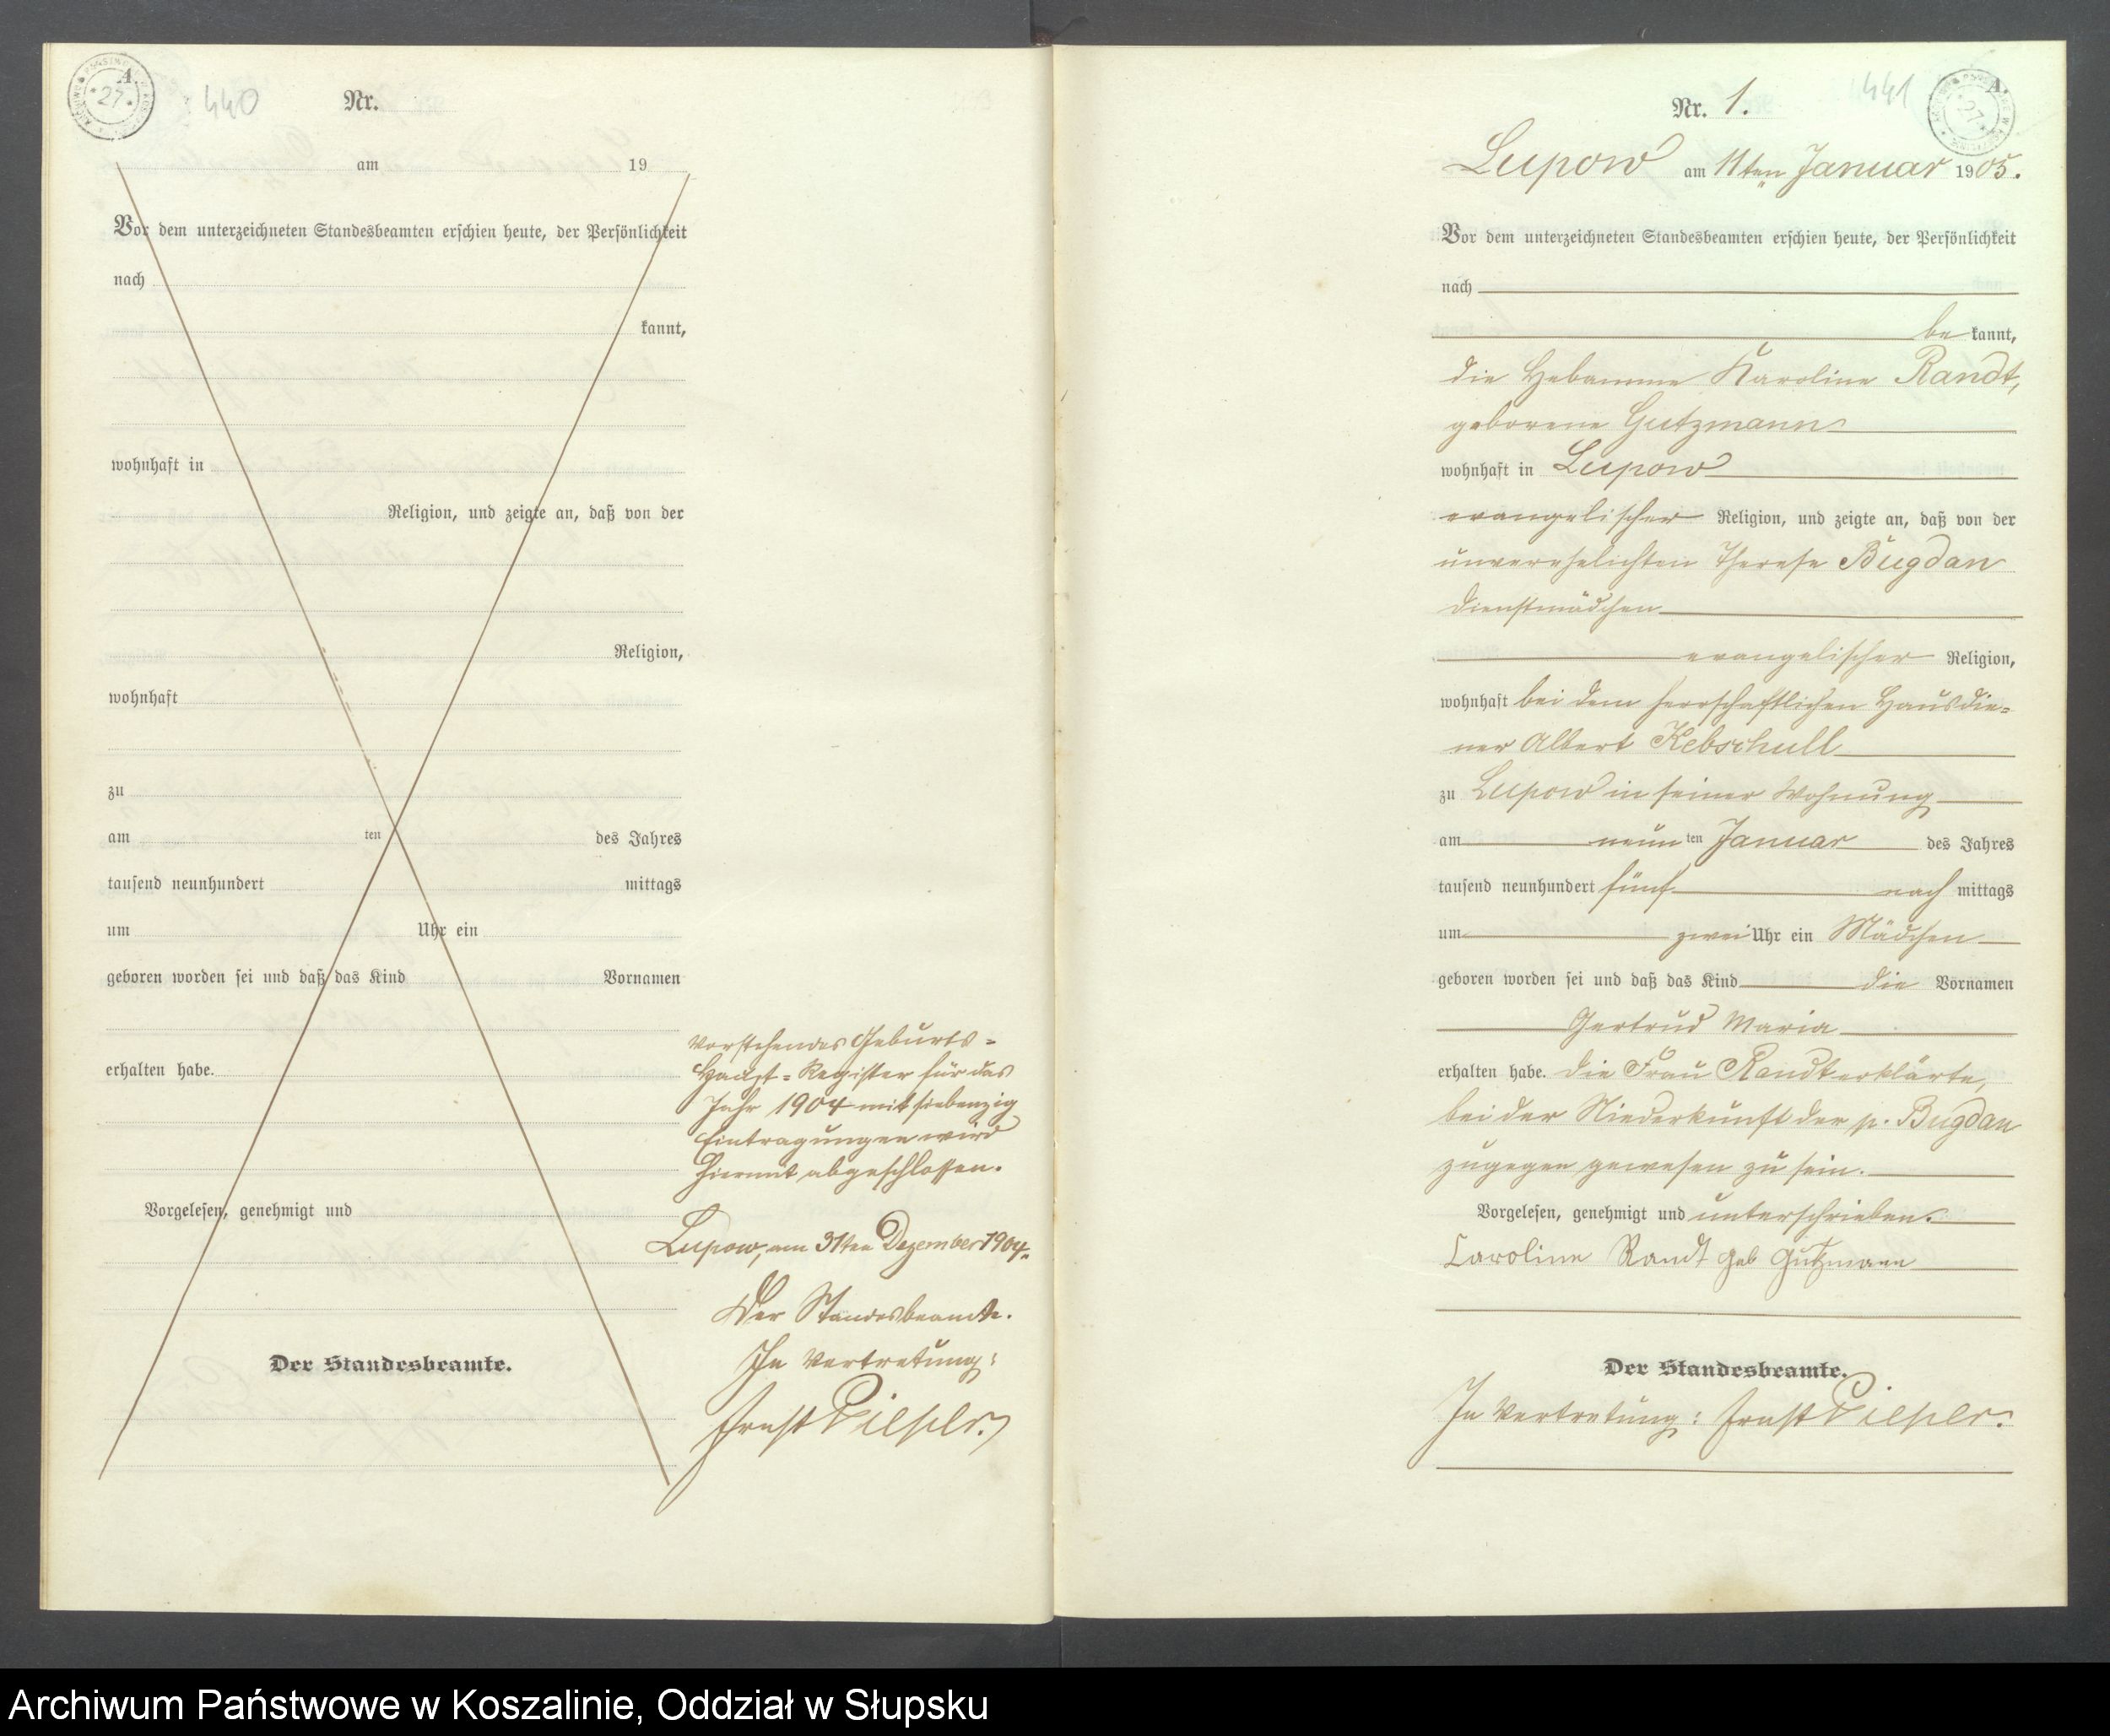 440
Nr.
am 19
Vor dem unterzeichneten Standesbeamten erschien heute, der Persönlichkeit
nach
kannt,
wohnhaft in
Religion, und zeigte an, daß von der
Religion,
wohnhaft
zu
am ten des Jahres
tausend neunhundert mittags
um Uhr ein
geboren worden sei und daß das Kind Vornamen
erhalten habe.
Vorgelesen, genehmigt und
Der Standesbeamte.
Vorstehendes Geburts-
Haupt-Register für das
Jahr 1904 mit siebenzig
Eintragungen wird
hiermit abgeschlossen.
Lupow, am 31ten Dezember 1904.
Der Standesbeamte.
In Vertretung:
Ernst Pieper.
441
Nr. 1.
Lupow am 11ten Januar 1905.
Vor dem unterzeichneten Standesbeamten erschien heute, der Persönlichkeit
nach
be kannt,
die Hebamme Karoline Randt,
geborene Gutzmann
wohnhaft in Lupow
evangelischer Religion, und zeigte an, daß von der
unverehelichten Therese Bugdan
Dienstmädchen
evangelischer Religion,
wohnhaft bei dem herrschaftlichen Hausdie-
ner Albert Kebschull
zu Lupow in seiner Wohnung
am neun ten Januar des Jahres
tausend neunhundert fünf nach mittags
um zwei Uhr ein Mädchen
geboren worden sei und daß das Kind die Vornamen
Gertrud Maria
erhalten habe. Die Frau Randt erklärte,
bei der Niederkunft der p. Bugdan
zugegen gewesen zu sein.
Vorgelesen, genehmigt und unterschrieben.
Caroline Randt geb Gutzmann
Der Standesbeamte.
In Vertretung: Ernst Pieper.
Archiwum Państwowe w Koszalinie, Oddział w Słupsku